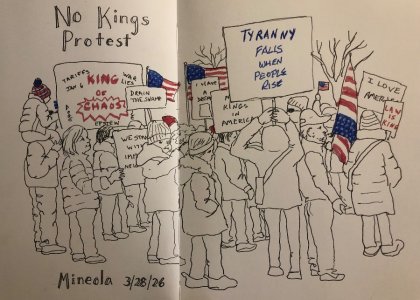 No Kings
Protest
TARIFFS
JAN 6
WAR
LIES
KING
OF
CHAOS!
EPSTEIN
DRAIN
THE SWAMP
I HAVE
A
DREAM
TYRANNY
FALLS
WHEN
PEOPLE
RISE
I LOVE
AMERICA
LAW
IS
KING
KINGS IN
AMERICA
WE STAND
WITH
Mineola 3/28/26